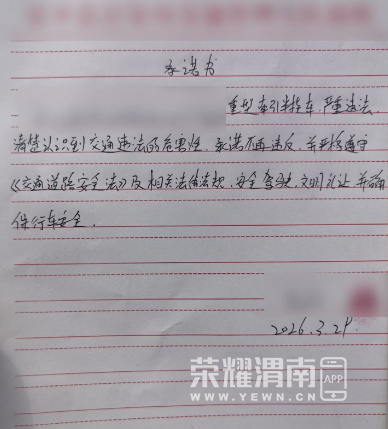 承诺书
重型牵引半挂车严重违法.
清楚认识到交通违法的危害性.承诺不再违反.并严格遵守
《交通道路安全法》及相关法律法规.安全驾驶.文明礼让并确
保行车安全.
2026.3.24
荣耀渭南 APP
WWW.YEWN.CN